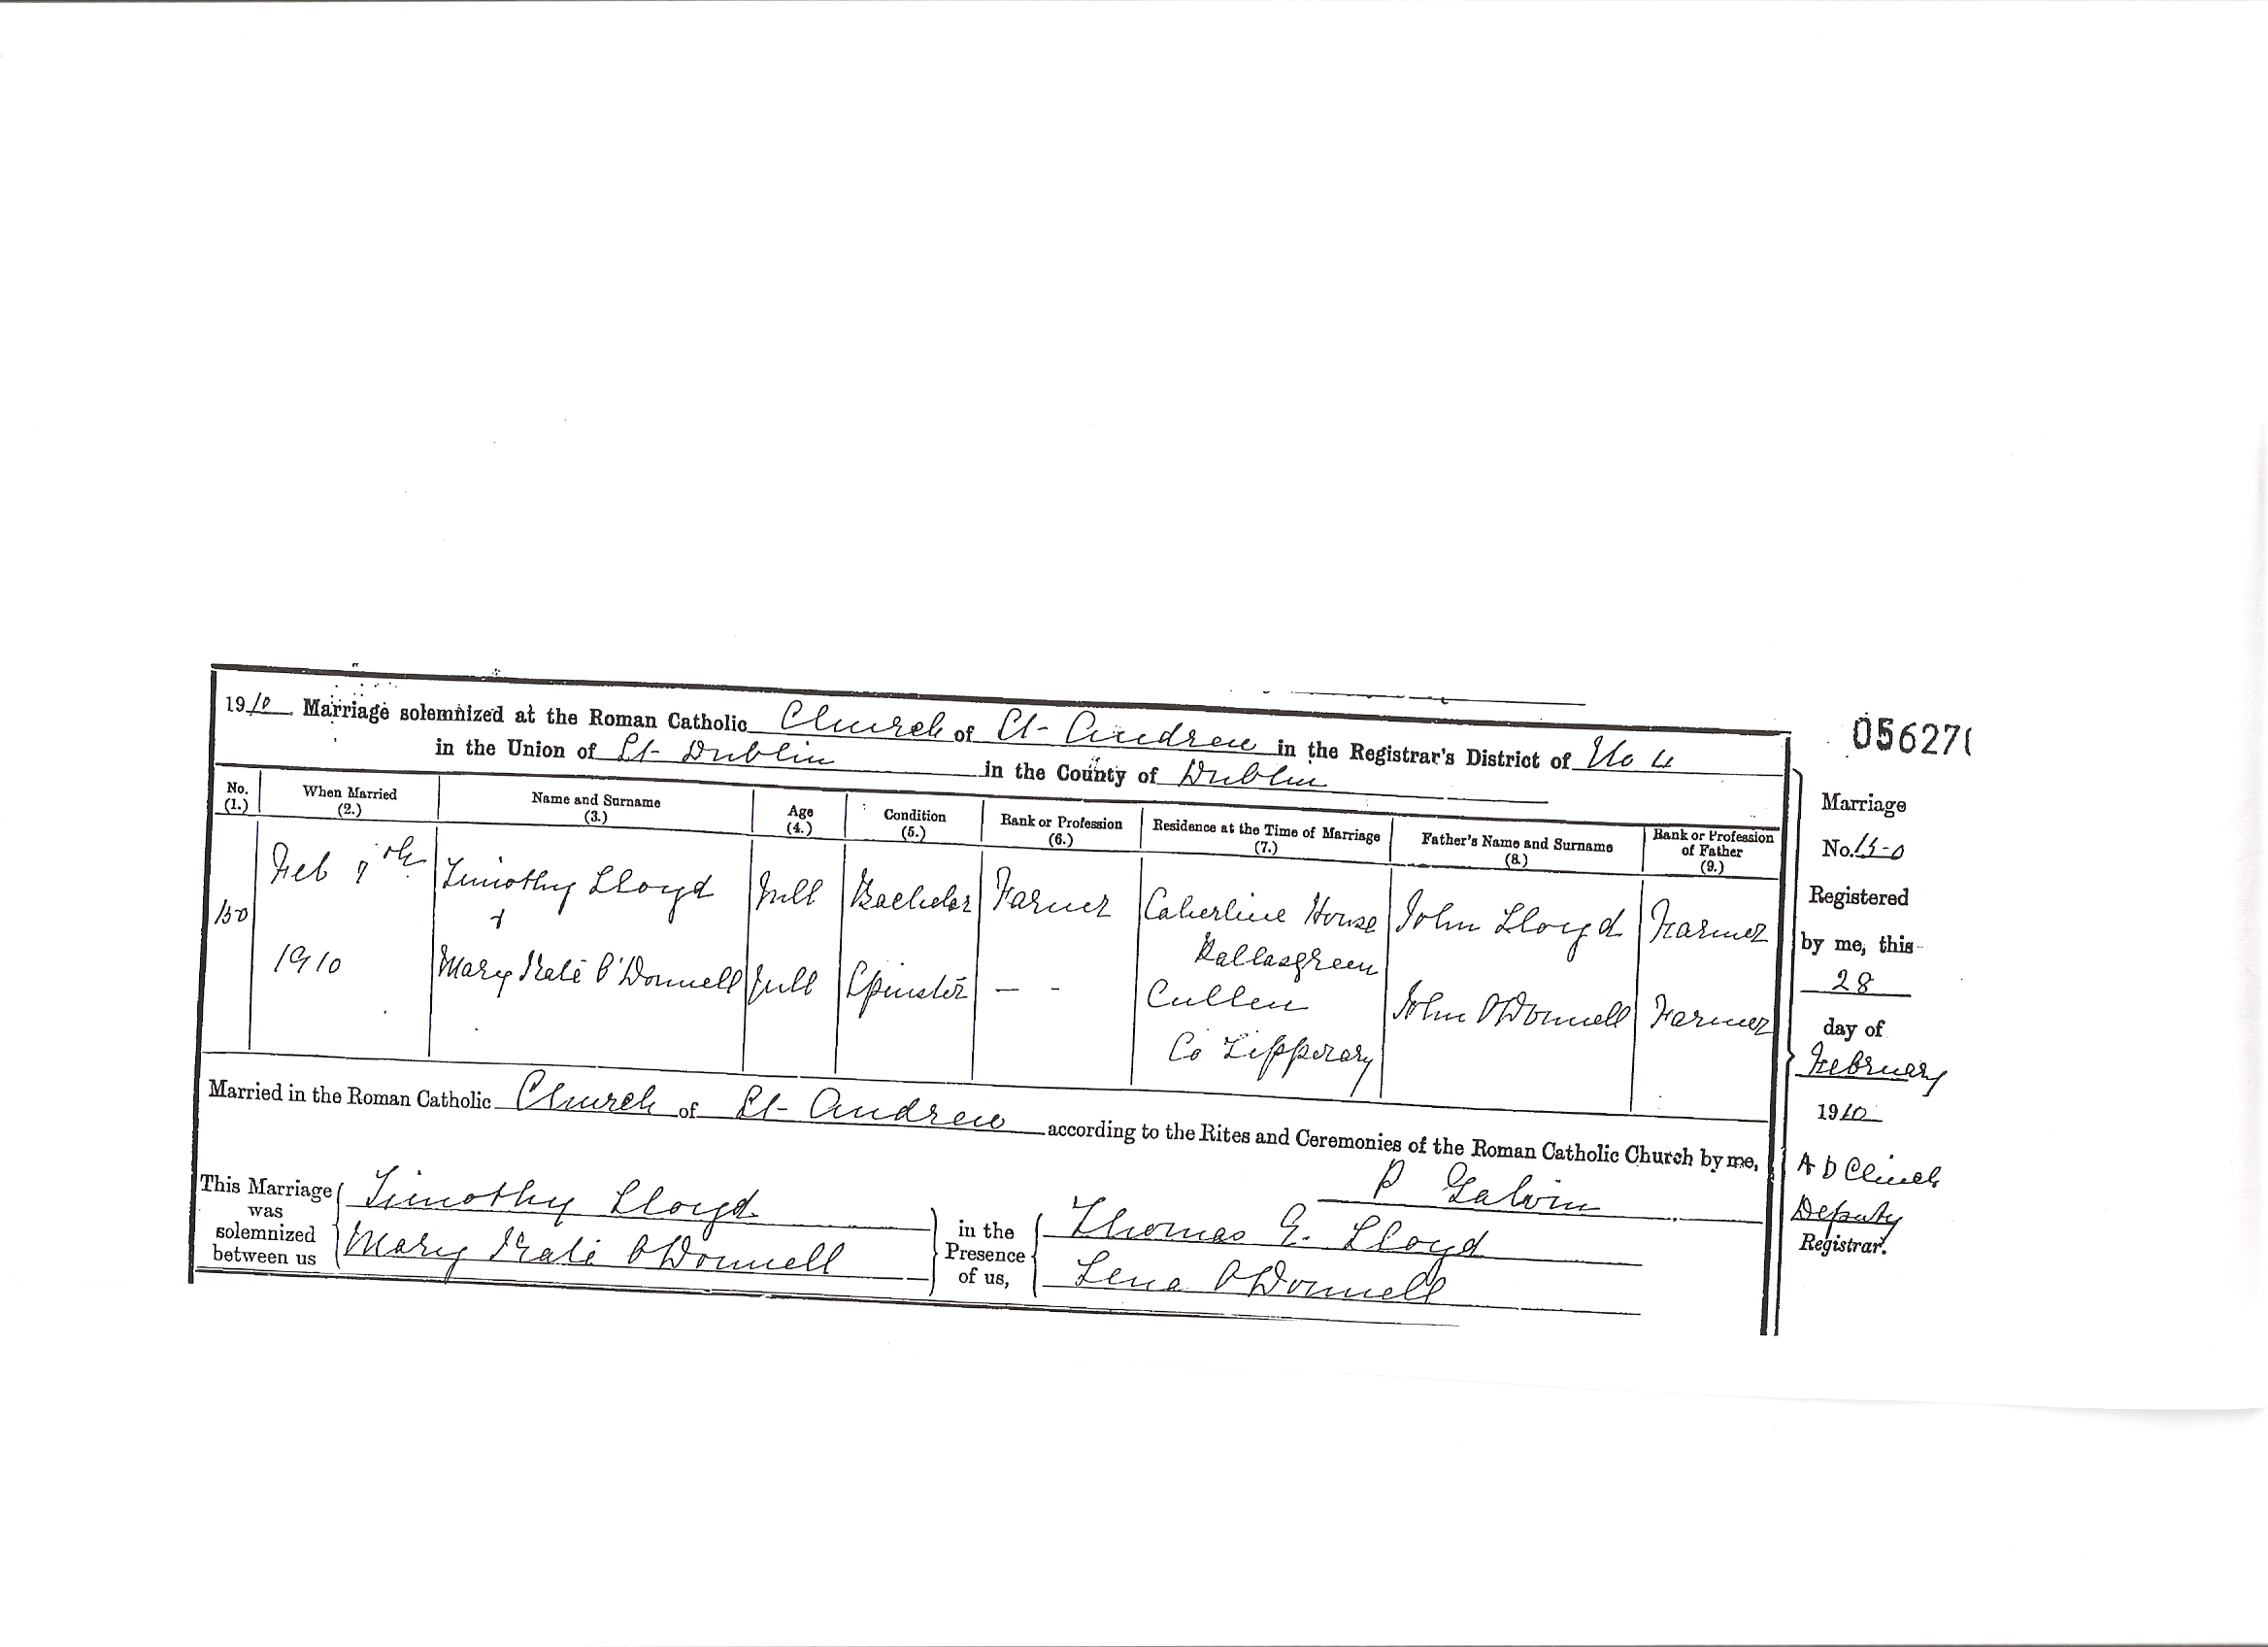 1910 Marriage solemnized at the Roman Catholic Church of St- Andrew in the Registrar's District of No 4
in the Union of St- Dublin in the County of Dublin
No. (1.) When Married (2.) Name and Surname (3.) Age (4.) Condition (5.) Rank or Profession (6.) Residence at the Time of Marriage (7.) Father's Name and Surname (8.) Rank or Profession of Father (9.)
150 Feb 7th Timothy Lloyd Full Bachelor Farmer Caherline House John Lloyd Farmer
+ Kallasgreen
1910 Mary Kate O'Donnell Full Spinster — - Cullen John O'Donnell Farmer
Co Tipperary
Married in the Roman Catholic Church of St- Andrew according to the Rites and Ceremonies of the Roman Catholic Church by me,
P Galvin
This Marriage was solemnized between us
Timothy Lloyd
Mary Kate O'Donnell
in the Presence of us,
Thomas G. Lloyd
Lena O'Donnell
05627
Marriage
No. 150
Registered
by me, this
28
day of
February
1910
A D Clinch
Deputy
Registrar.